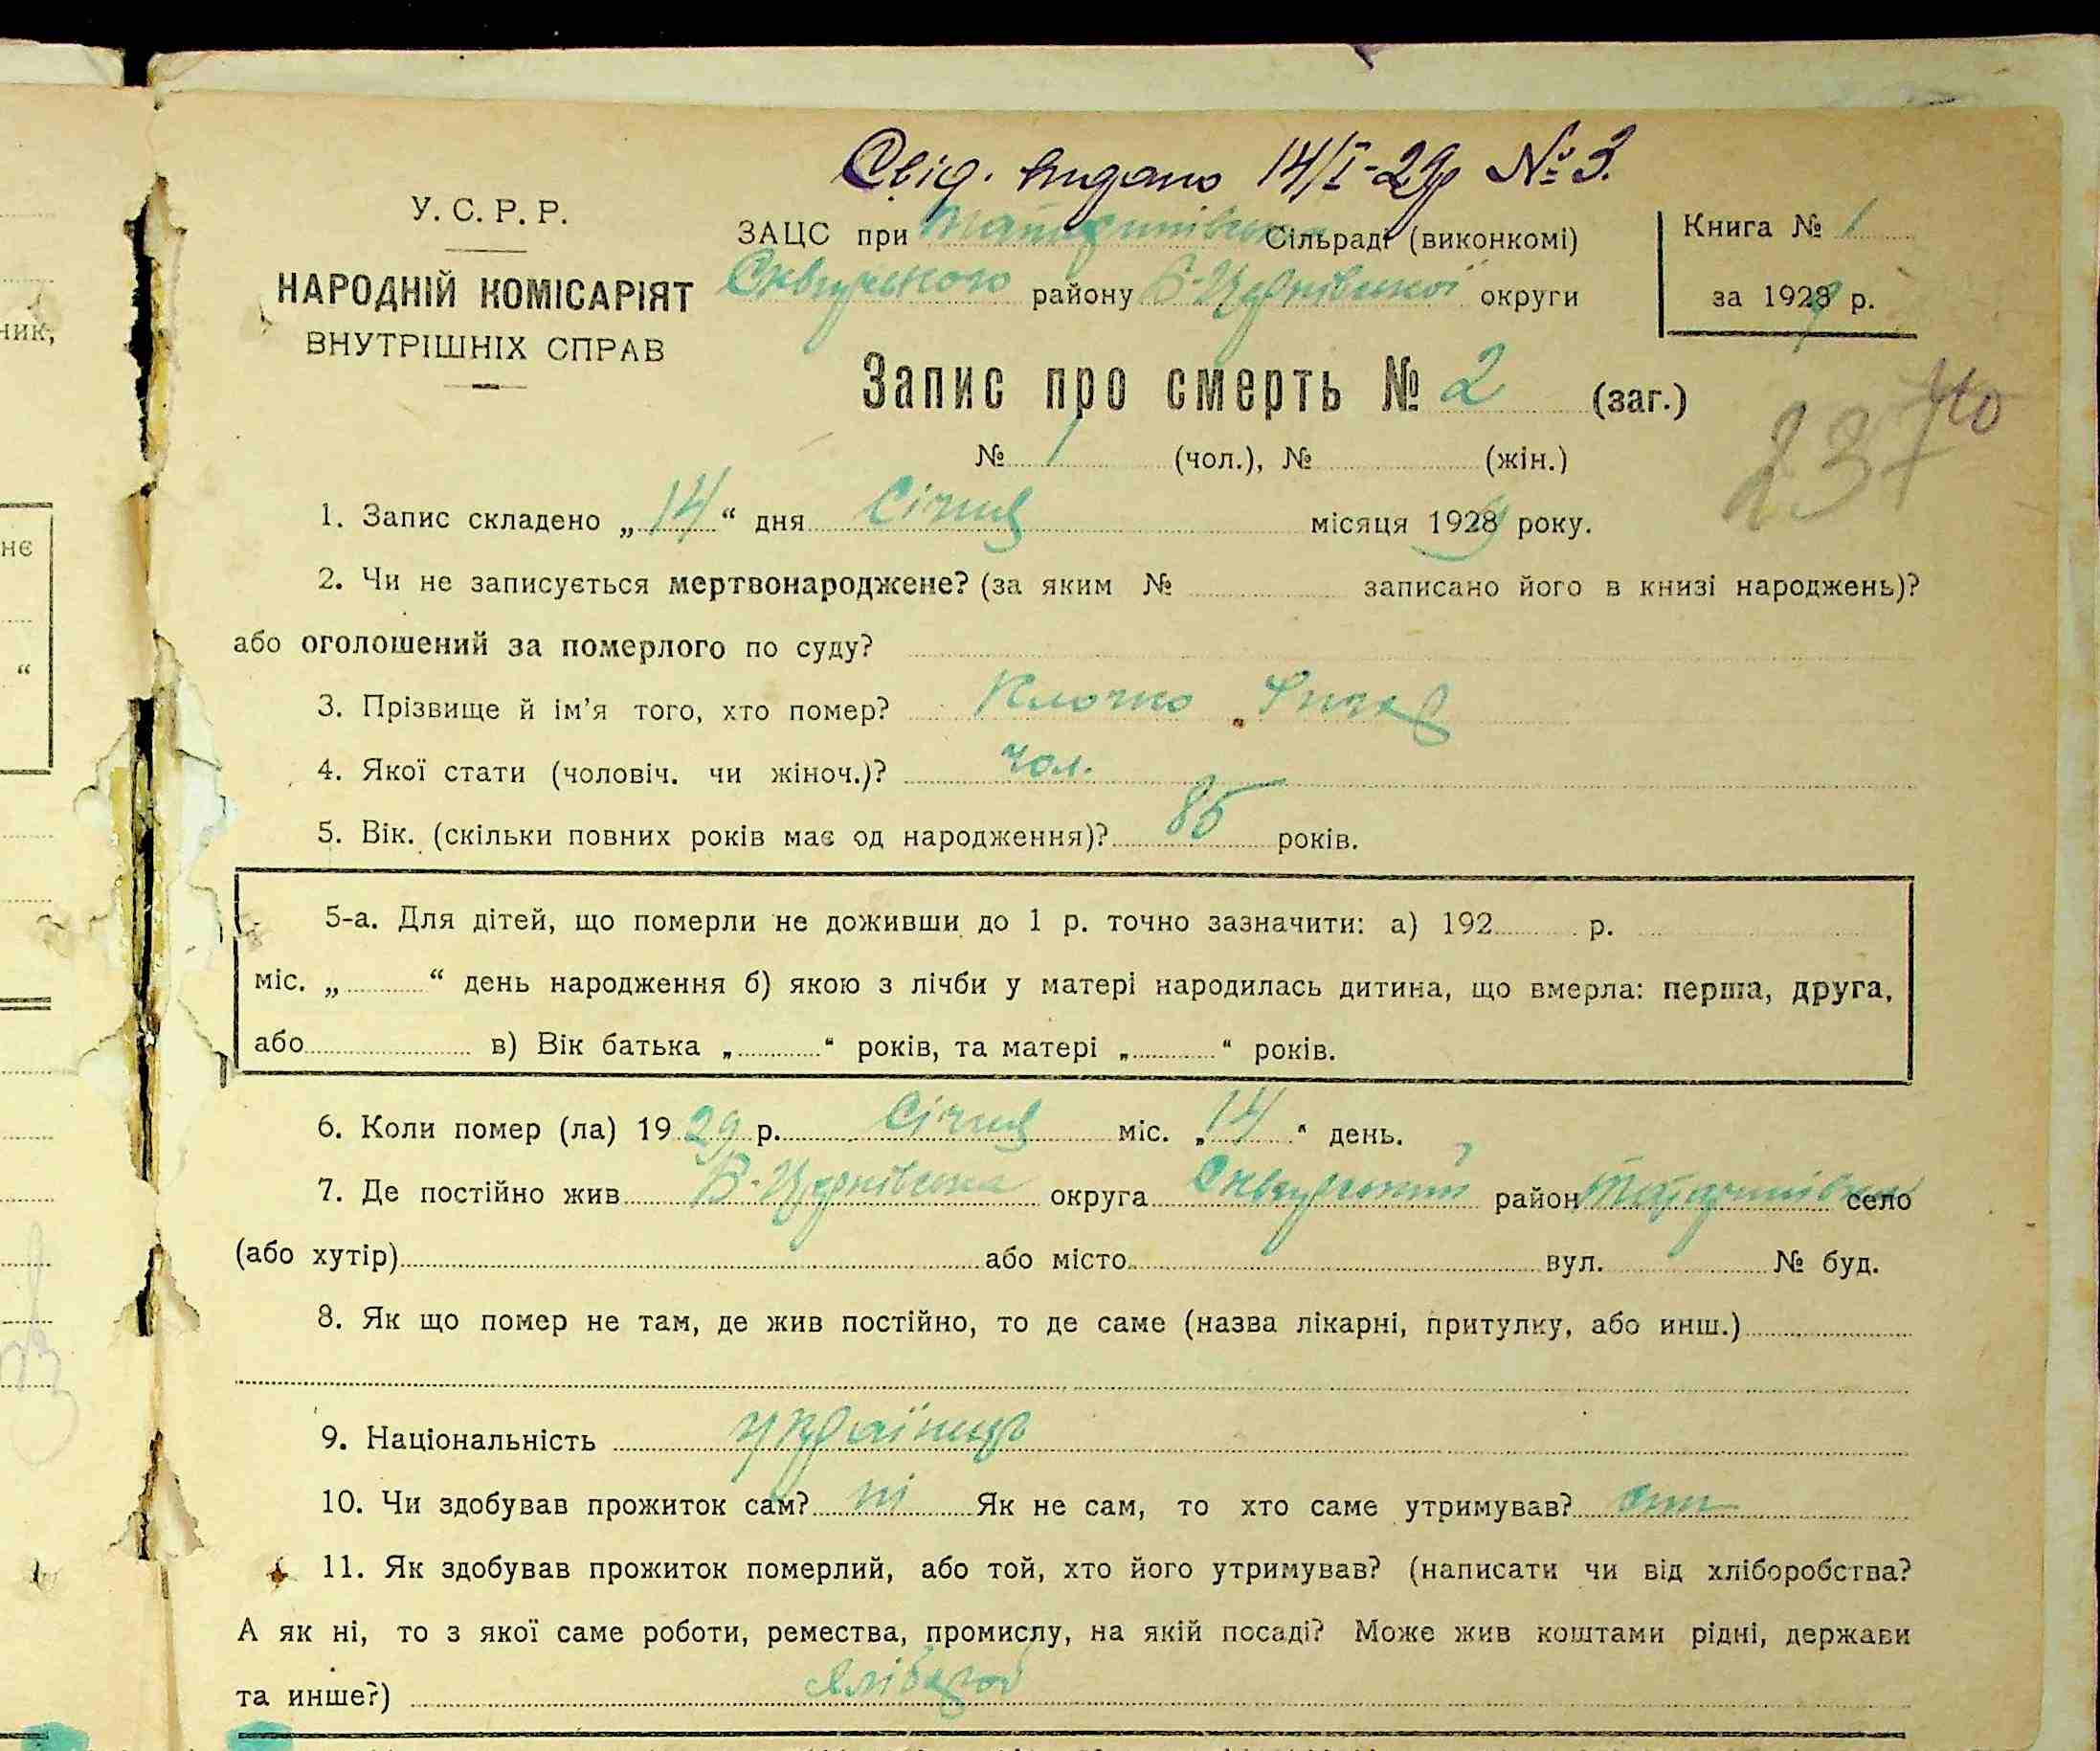 Свід. видано 14/I-29р № 3.
У. С. Р. Р.
НАРОДНІЙ КОМІСАРІЯТ
ВНУТРІШНІХ СПРАВ
ЗАЦС при Сільраді (виконкомі)
Сквирського району Б-Церківської округи
Книга № 1
за 1929 р.
Запис про смерть № 2 (заг.)
№ 1 (чол.), № (жін.)
237
40
1. Запис складено „14“ дня Січня місяця 1929 року.
2. Чи не записується мертвонароджене? (за яким № записано його в книзі народжень)?
або оголошений за померлого по суду?
3. Прізвище й ім’я того, хто помер? Клочко
4. Якої стати (чоловіч. чи жіноч.)? чол.
5. Вік. (скільки повних років має од народження)? 85 років.
5-а. Для дітей, що померли не доживши до 1 р. точно зазначити: а) 192 р.
міс. „ “ день народження б) якою з лічби у матері народилась дитина, що вмерла: перша, друга,
або в) Вік батька „ “ років, та матері „ “ років.
6. Коли помер (ла) 1929 р. Січня міс. „14“ день.
7. Де постійно жив Б-Церківська округа Сквирський район село
(або хутір) або місто вул. № буд.
8. Як що помер не там, де жив постійно, то де саме (назва лікарні, притулку, або инш.)
9. Національність українець
10. Чи здобував прожиток сам? ні Як не сам, то хто саме утримував? син
11. Як здобував прожиток померлий, або той, хто його утримував? (написати чи від хліборобства?
А як ні, то з якої саме роботи, ремества, промислу, на якій посаді? Може жив коштами рідні, держави
та инше?) хлібороб
ник,
нє
“